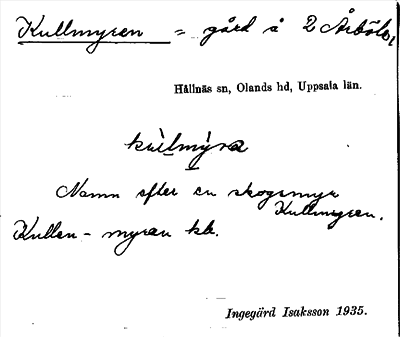 Kullmyren = gård i 2 Årböle,
Hållnäs sn, Olands hd, Uppsala län.
Namn efter en skogsmyr
Kullmyren.
Kullen - myren kk.
Ingegärd Isaksson 1935.